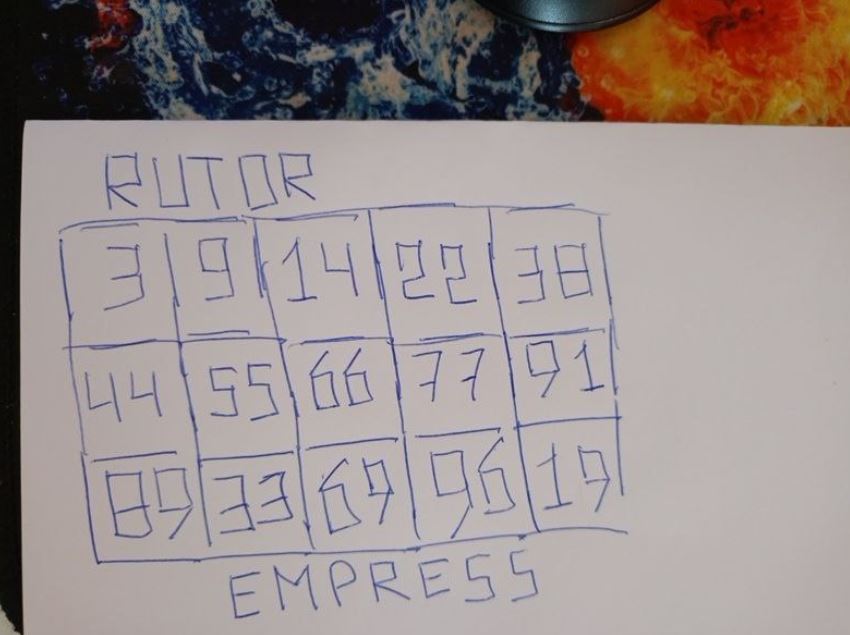 RUTOR
3 9 14 22 38
44 55 66 77 91
89 33 69 96 19
EMPRESS